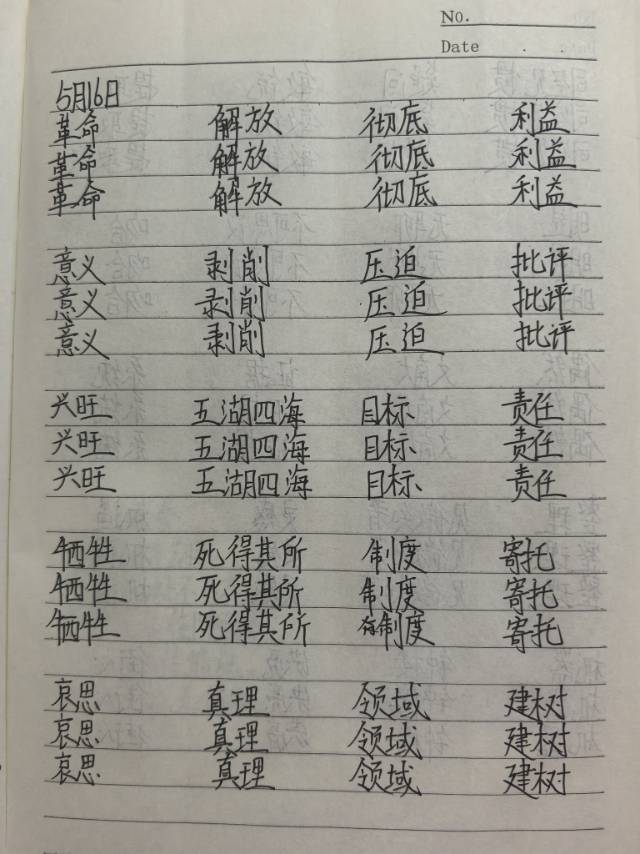 No.
Date . .
5月16日
革命 解放 彻底 利益
革命 解放 彻底 利益
革命 解放 彻底 利益
意义 剥削 压迫 批评
意义 剥削 压迫 批评
意义 剥削 压迫 批评
兴旺 五湖四海 目标 责任
兴旺 五湖四海 目标 责任
兴旺 五湖四海 目标 责任
牺牲 死得其所 制度 寄托
牺牲 死得其所 制度 寄托
牺牲 死得其所 制度 寄托
哀思 真理 领域 建树
哀思 真理 领域 建树
哀思 真理 领域 建树